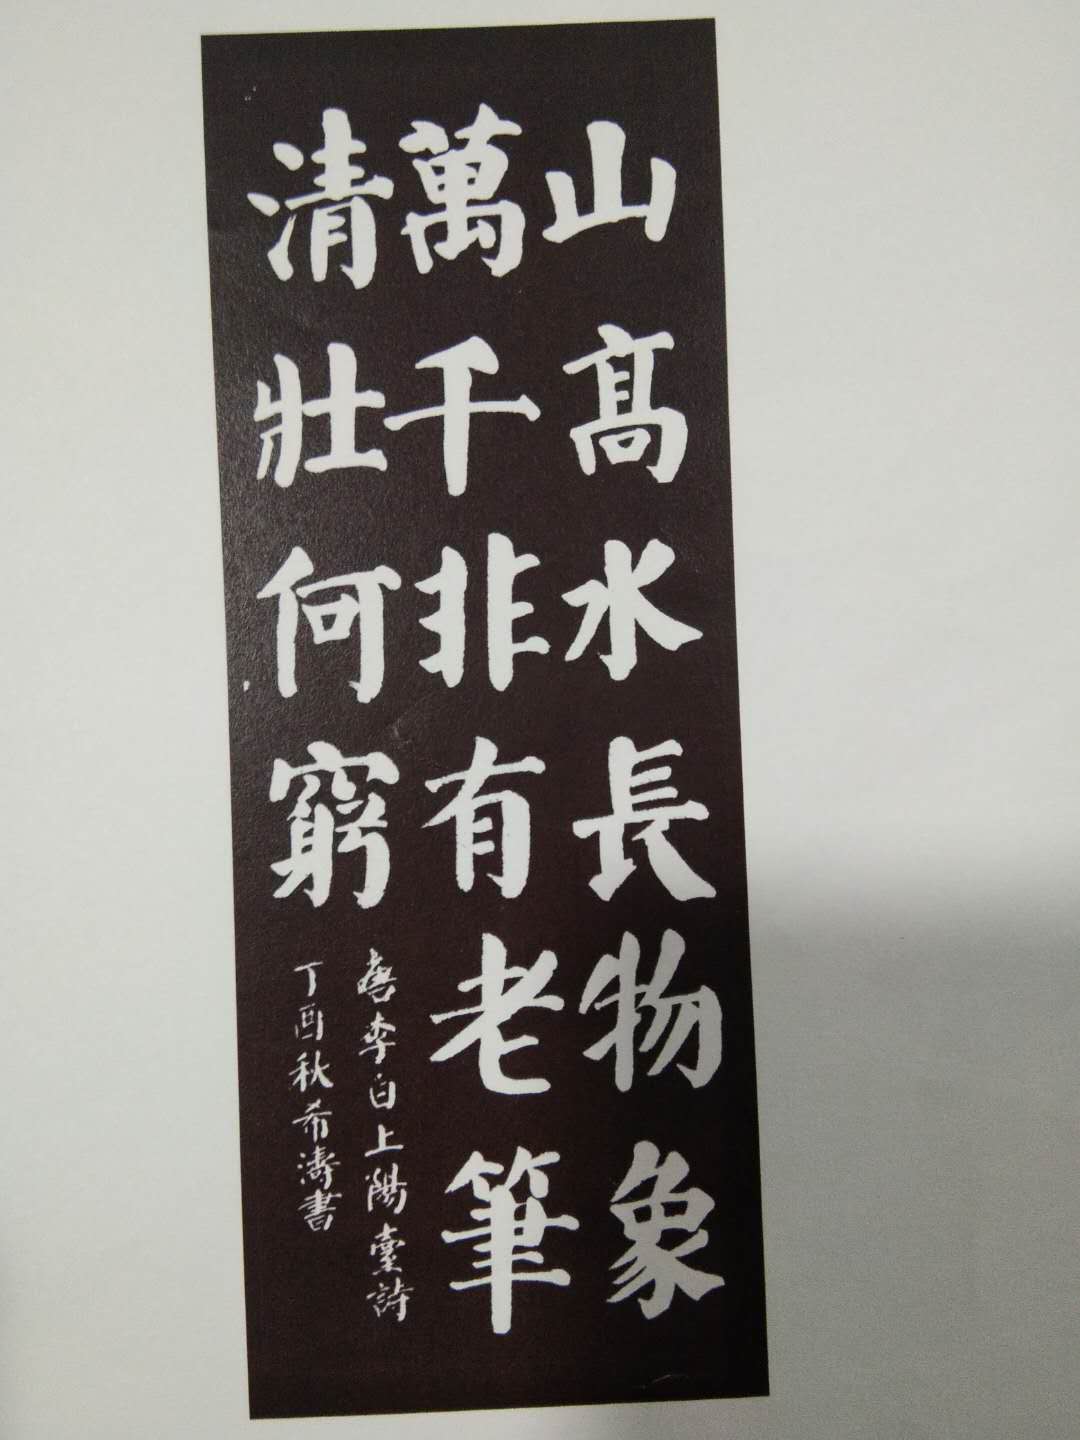 山高水長物象
萬千非有老筆
清壯何窮
唐李白上陽臺詩
丁酉秋希濤書